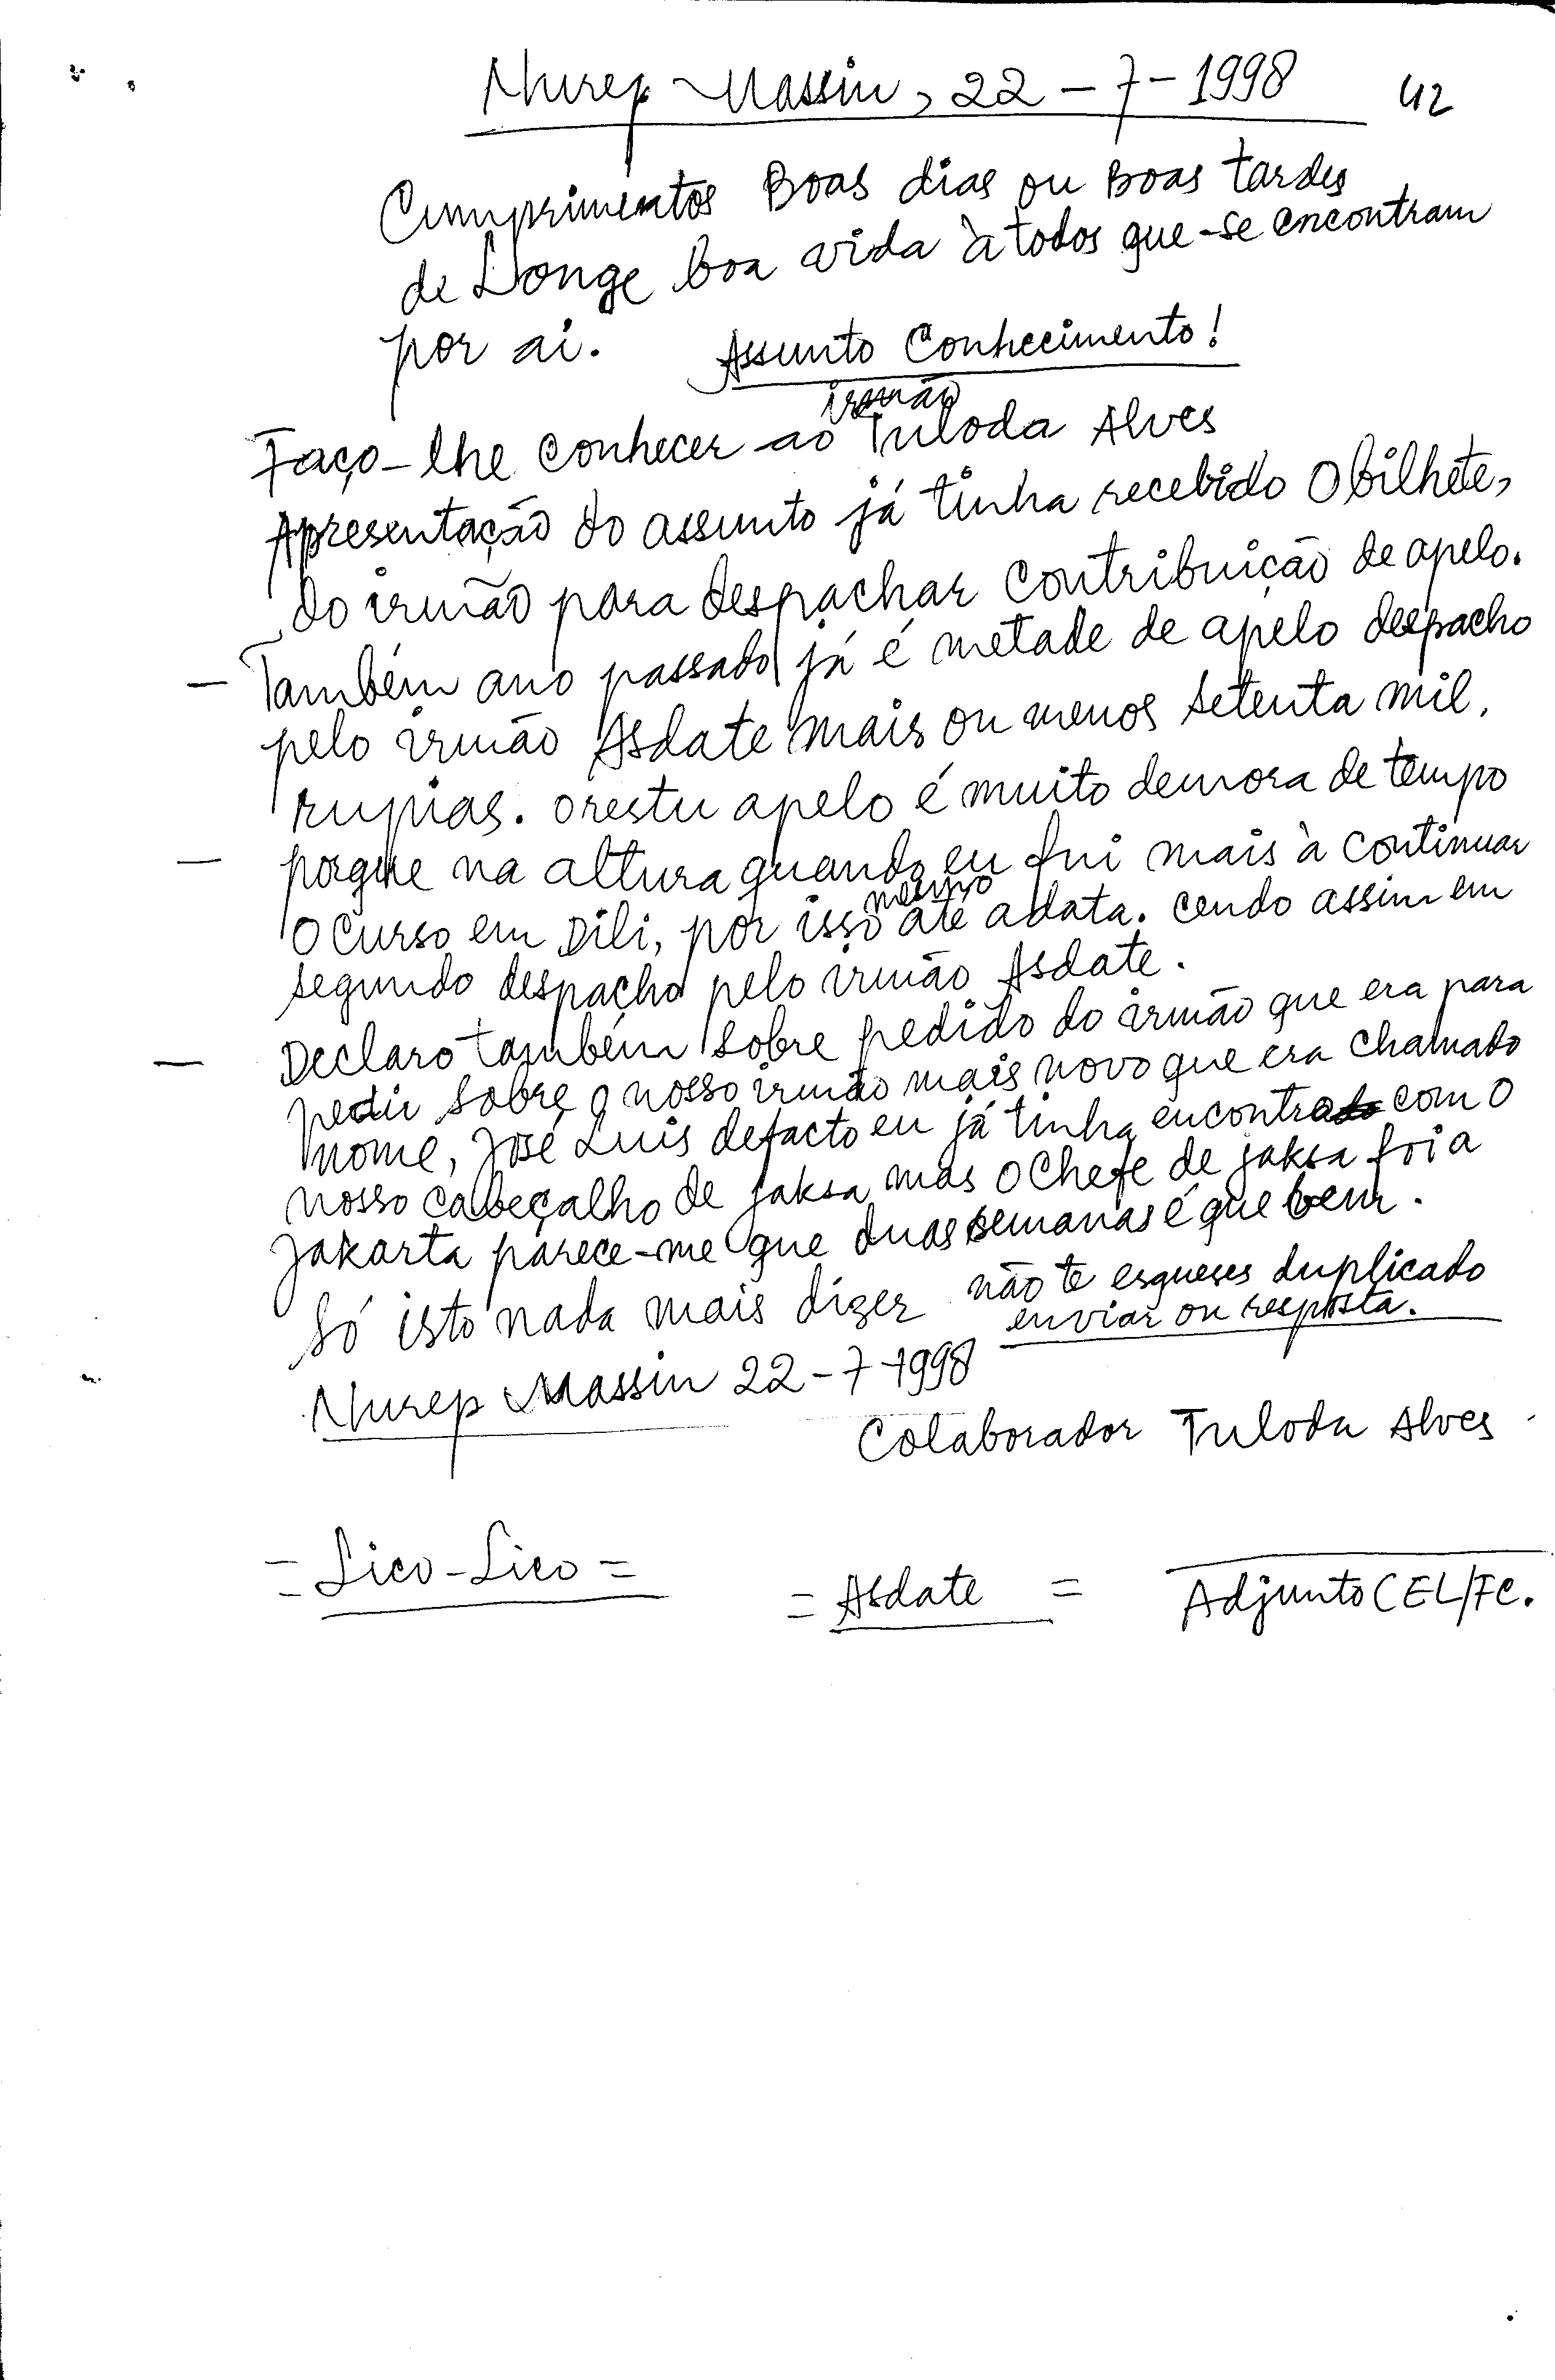 Nurep Massin, 22-7-1998 42
Cumprimentos Boas dias ou Boas tardes
de Longe boa vida à todos que-se encontram
por ai. Assunto Conhecimento!
irmão
Faço-lhe conhecer ao Tuloda Alves
Apresentação do assunto já tinha recebido O bilhete,
do irmão para despachar contribuição de apelo.
- Também ano passado já é metade de apelo despacho
pelo irmão Asdate mais ou menos setenta mil,
rupias. o restu apelo é muito demora de tempo
- porque na altura quando eu fui mais à continuar
mesmo
O curso em Dili, por isso até a data. cendo assim em
segundo despacho pelo irmão Asdate.
- Declaro também sobre pedido do irmão que era para
pedir sobre o nosso irmão mais novo que era chamado
nome, José Luis de facto eu já tinha encontrado com O
nosso cabeçalho de jaksa mas O Chefe de jaksa foi a
Jakarta parece-me que duas semanas é que bem.
Só isto nada mais dizer não te esqueses duplicado
enviar ou resposta.
Nurep Massin 22-7-1998
Colaborador Tuloda Alves
= Lico-Lico =
= Asdate = Adjunto CEL/FC.